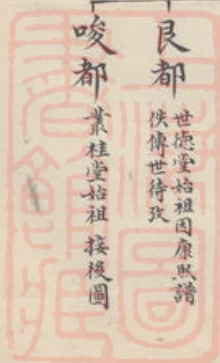 良都
世德堂始祖因康熙譜
佚傳世待攷
唆都
叢桂堂始祖 接後圖